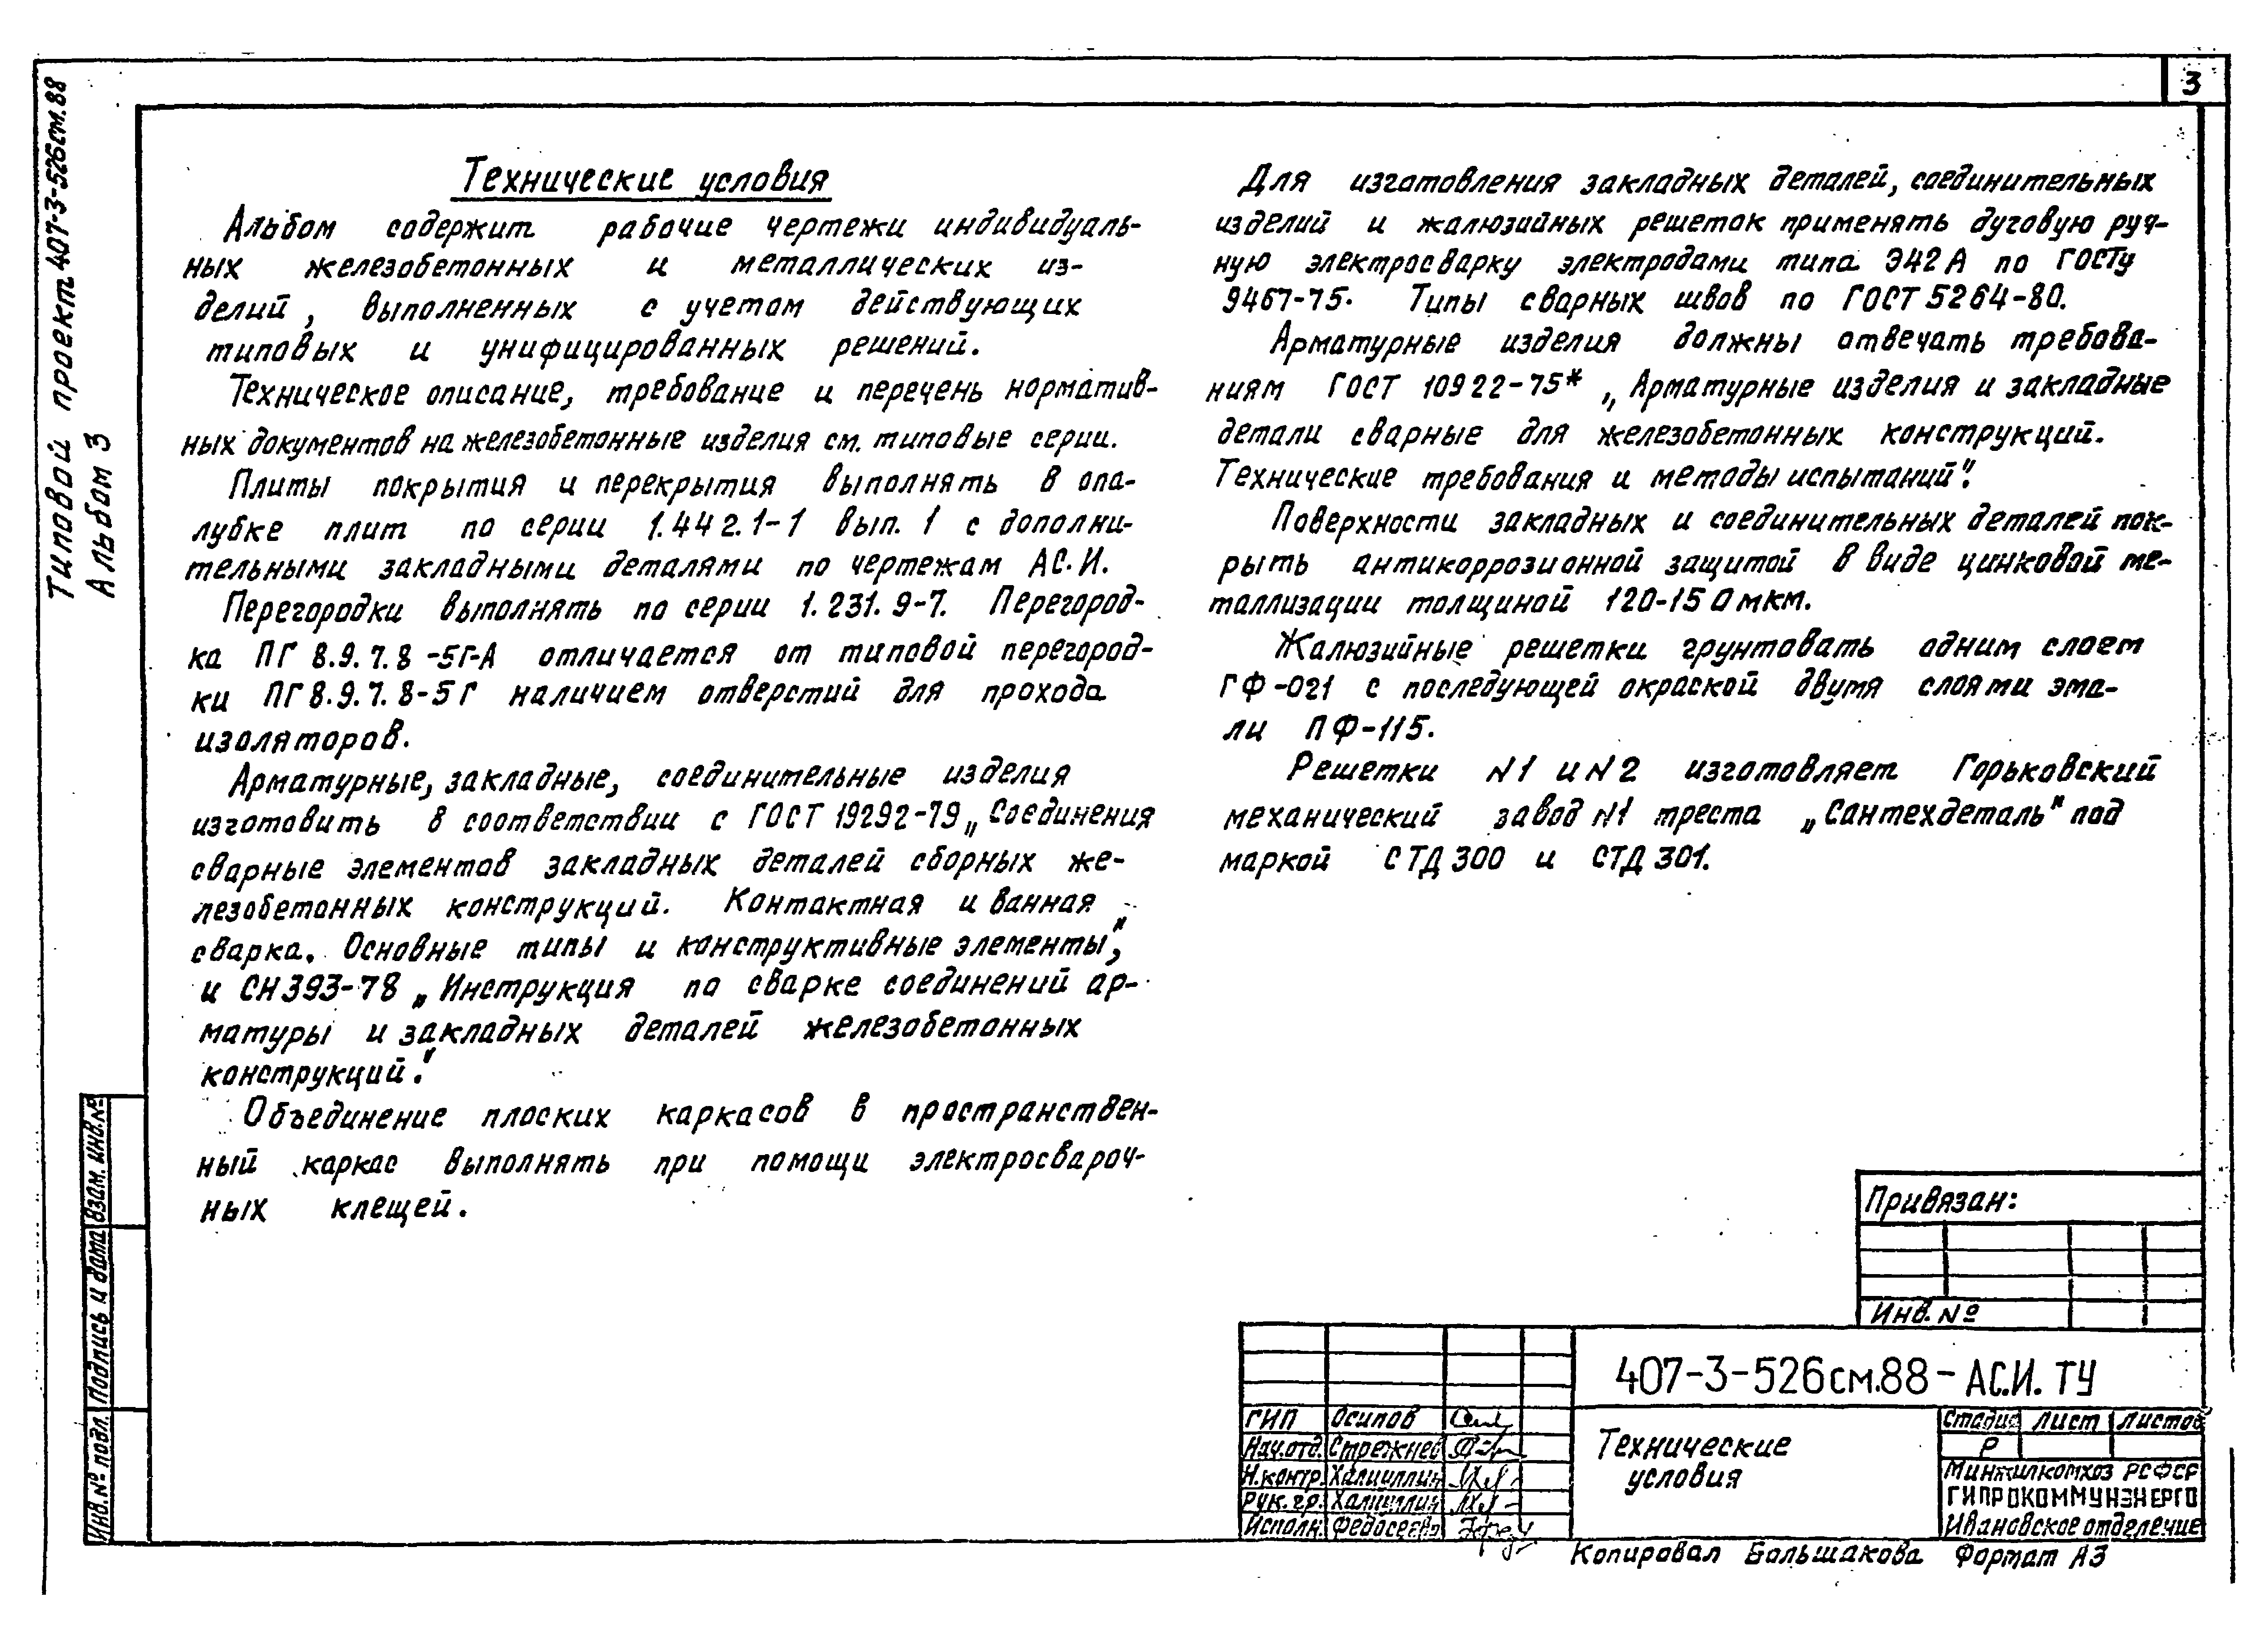 3
Типовой проект 407-3-526см.88
Альбом 3
Технические условия
Альбом содержит рабочие чертежи индивидуаль-
ных железобетонных и металлических из-
делий, выполненных с учетом действующих
типовых и унифицированных решений.
Техническое описание, требование и перечень норматив-
ных документов на железобетонные изделия см. типовые серии.
Плиты покрытия и перекрытия выполнять в опа-
лубке плит по серии 1.442.1-1 вып. 1 с дополни-
тельными закладными деталями по чертежам АС.И.
Перегородки выполнять по серии 1.231.9-7. Перегород-
ка ПГ 8.9.7.8-5Г-А отличается от типовой перегород-
ки ПГ 8.9.7.8-5Г наличием отверстий для прохода
изоляторов.
Арматурные, закладные, соединительные изделия
изготовить в соответствии с ГОСТ 19292-79 „Соединения
сварные элементов закладных деталей сборных же-
лезобетонных конструкций. Контактная и ванная
сварка. Основные типы и конструктивные элементы",
и СН 393-78 „Инструкция по сварке соединений ар-
матуры и закладных деталей железобетонных
конструкций".
Объединение плоских каркасов в пространствен-
ный каркас выполнять при помощи электросвароч-
ных клещей.
Для изготовления закладных деталей, соединительных
изделий и жалюзийных решеток применять дуговую руч-
ную электросварку электродами типа Э42А по ГОСТу
9467-75. Типы сварных швов по ГОСТ 5264-80.
Арматурные изделия должны отвечать требова-
ниям ГОСТ 10922-75* „Арматурные изделия и закладные
детали сварные для железобетонных конструкций.
Технические требования и методы испытаний".
Поверхности закладных и соединительных деталей пок-
рыть антикоррозионной защитой в виде цинковой ме-
таллизации толщиной 120-150мкм.
Жалюзийные решетки грунтовать одним слоем
ГФ-021 с последующей окраской двумя слоями эма-
ли ПФ-115.
Решетки N1 и N2 изготовляет Горьковский
механический завод N1 треста „Сантехдеталь" под
маркой СТД 300 и СТД 301.
Взам. инв.№
Подпись и дата
Инв.№ подл.
Привязан:
Инв. №
407-3-526см.88-АС.И.ТУ
ГИП Осипов
Нач.отд. Стрежнев
Н.контр. Халиуллин
Рук. гр. Халиуллин
Исполн.
Технические
условия
Стадия Лист Листов
Р
Минжилкомхоз РСФСР
ГИПРОКОММУНЭНЕРГО
Ивановское отделение
Копировал Большакова Формат А3